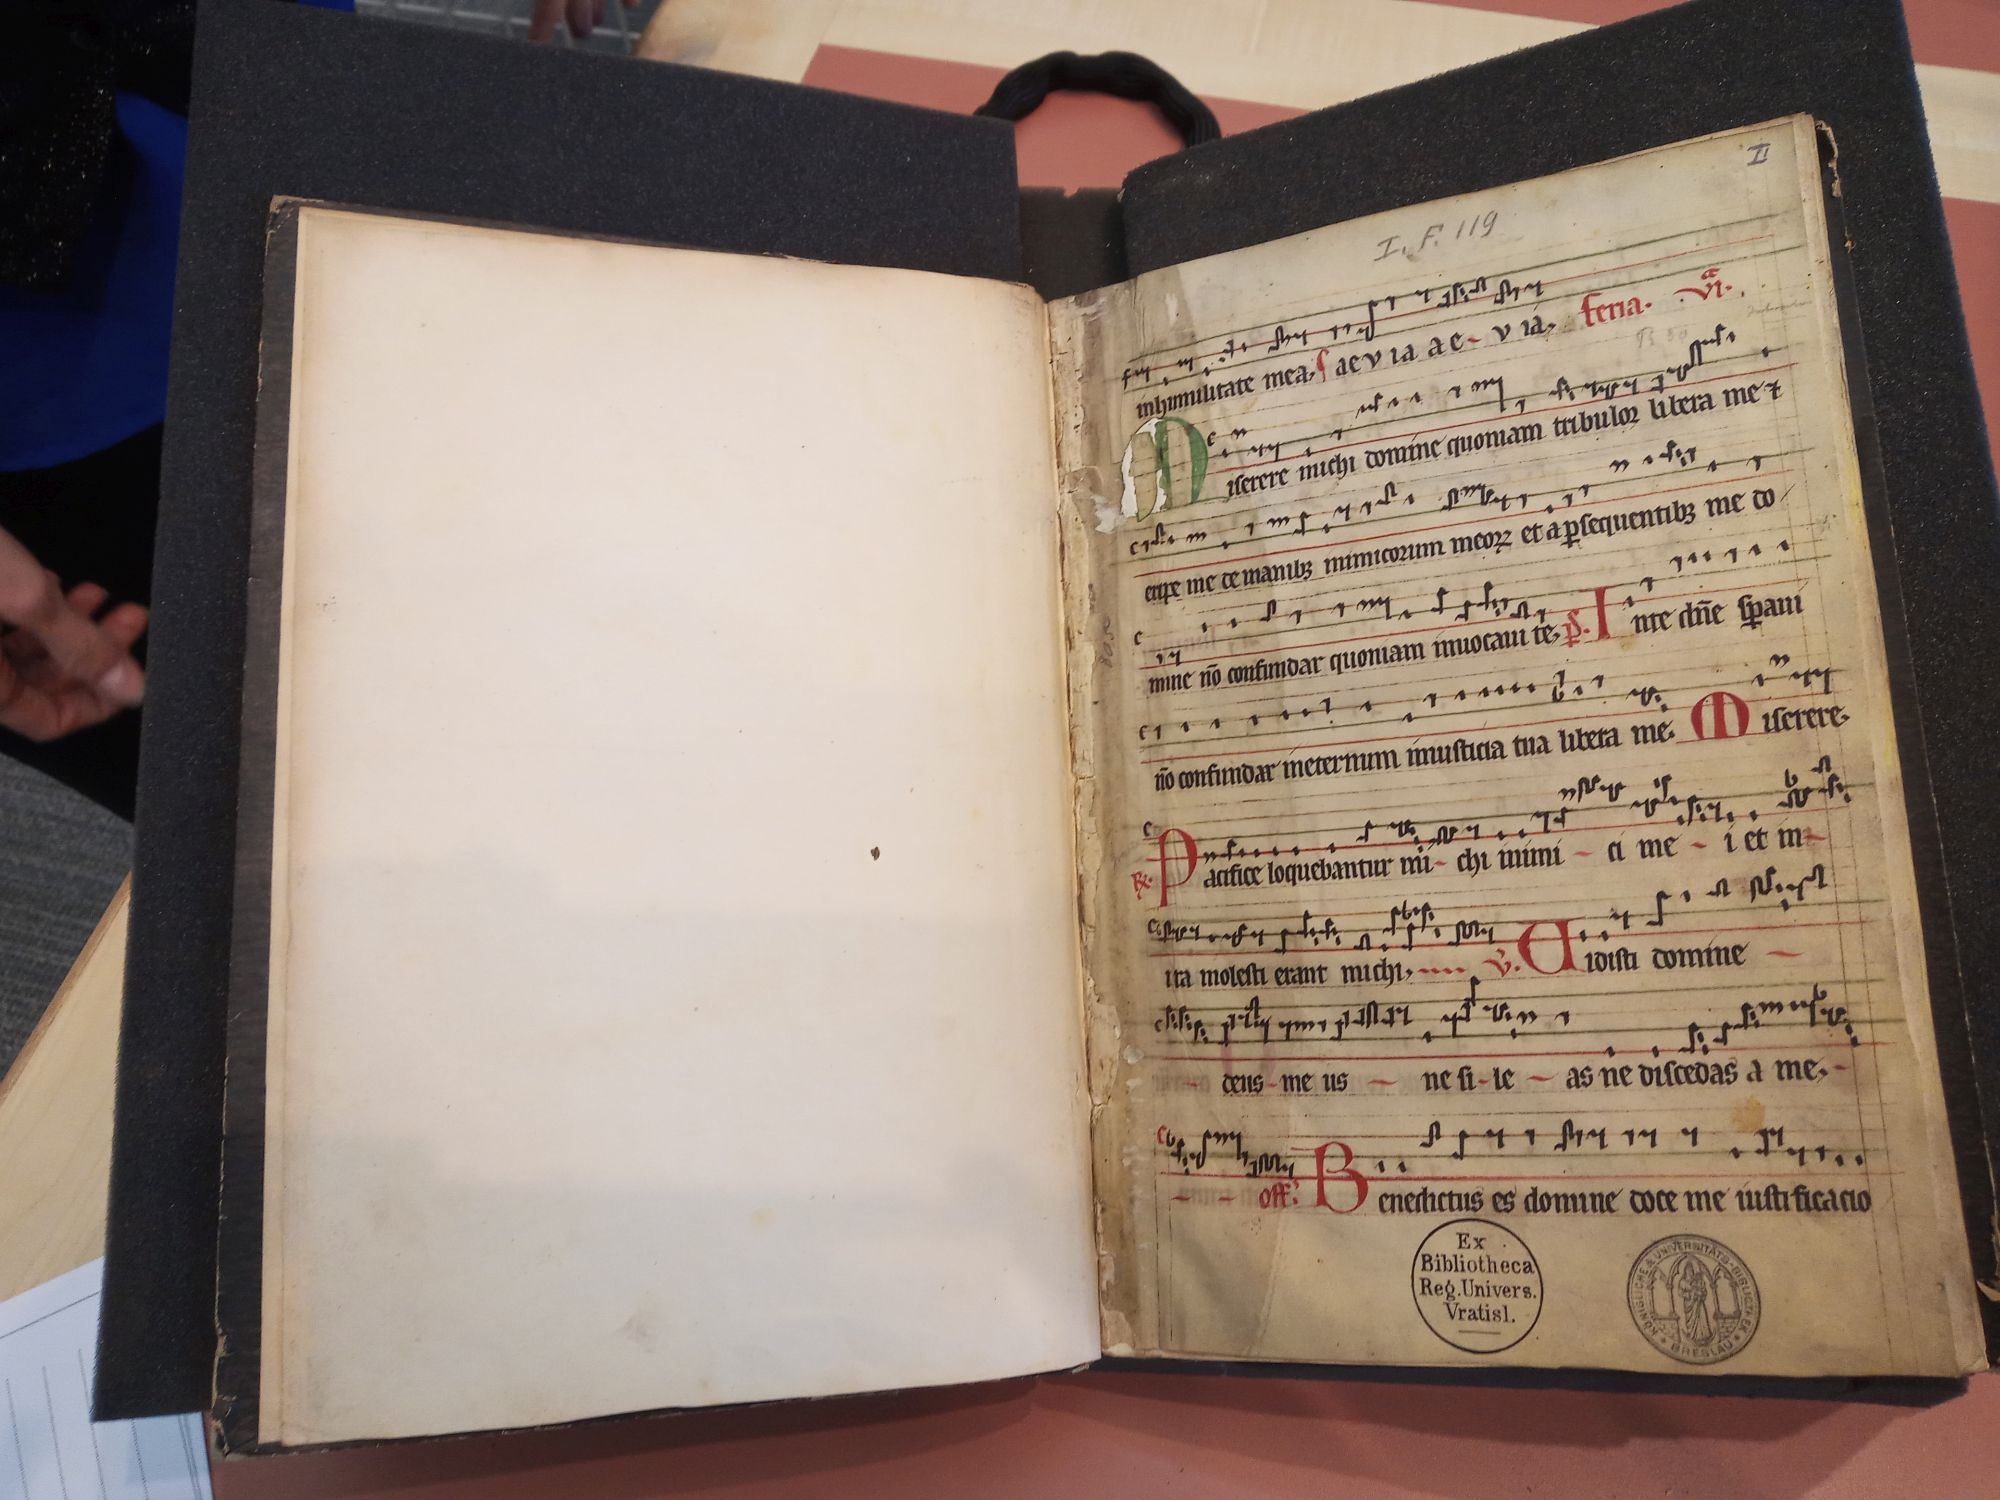 II
I. F. 119
inhumilitate mea, aevia ae - v ia, feria. vi.a
Miserere michi domine quoniam tribuloꝛ libera me ⁊
eripe me de manibꝫ inimicorum meoꝝ et a ꝑsequentibꝫ me do
mine nō confundar quoniam inuocaui te, ps. In te dn̄e sꝑaui
nō confundar ineternum iniusticia tua libera me. Miserere.
R̸. Pacifice loquebantur mi - chi inimi - ci me - i et in -
ira molesti erant michi, v̄. Uidisti domine -
- deus - me us - ne si - le - as ne discedas a me, -
- - off. Benedictus es domine doce me iustificacio
Ex
Bibliotheca
Reg. Univers.
Vratisl.
KÖNIGLICHE & UNIVERSITÄTS-BIBLIOTHEK
* BRESLAU *